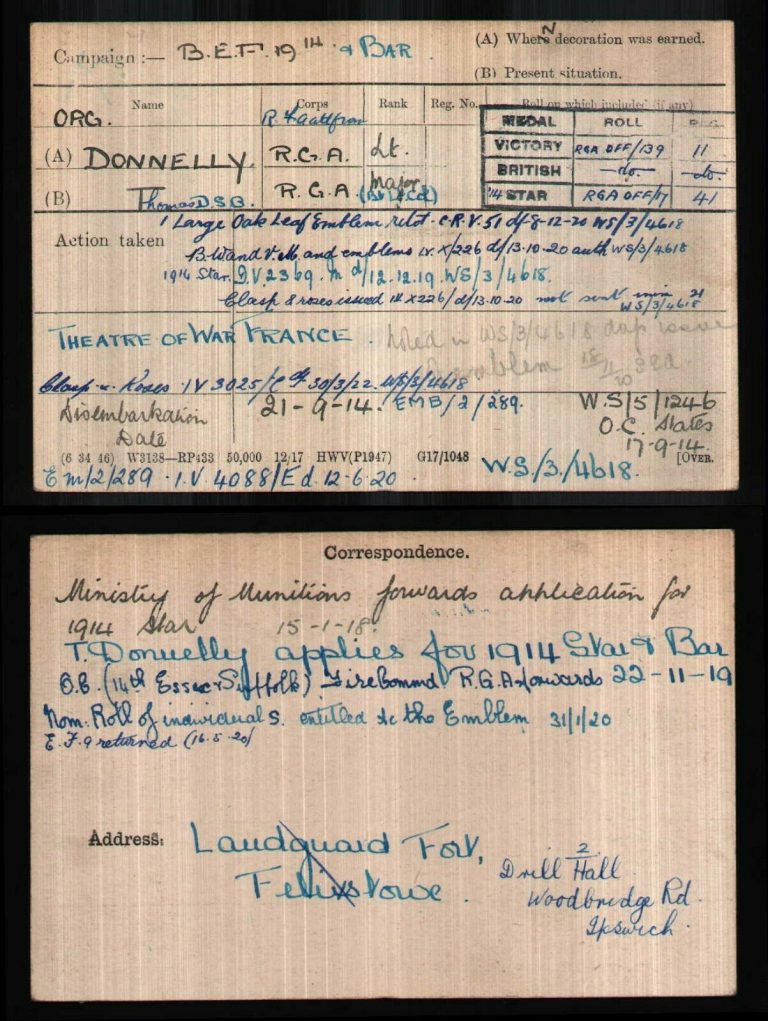 Campaign :— B.E.F. 1914 & BAR.
(A) Where decoration was earned.
(B) Present situation.
Name Corps Rank Reg. No. Roll on which included (if any)
ORG.
MEDAL ROLL PAGE
(A) DONNELLY. R.G.A. Lt.
VICTORY RGA OFF/139 11
BRITISH —do.— —do—
(B) Thomas D.S.O. R.G.A. Major
'14 STAR RGA OFF/17 41
1 Large Oak Leaf Emblem C.R.V. 51 d/-8-12-20 WS/3/4618
Action taken B. W and V. M. and emblems I.V. X/226 d/13-10-20 auth WS/3/4618
1914 Star. I.V. 2369. M d/12.12.19. WS/3/4618.
Clasp & roses issued IV X226/d/13.10.20 not sent WS/3/4618
THEATRE OF WAR FRANCE.
Clasp & Roses IV 3025/C d/ 30/3/22. WS/3/4618
Disembarkation Date 21-9-14. EMB/2/289. W.S/5/1246
O.C. States
17-9-14.
(6 34 46) W3138—RP433 50,000 12/17 HWV(P1947) G17/1048 [OVER.
Em/2/289 . I.V. 4088/E d. 12-6-20 W.S./3./4618.
Correspondence.
Ministry of Munitions forwards application for
1914 Star 15-1-18.
T. Donnelly applies for 1914 Star & Bar
O.C. (14th Essex & Suffolk) Fire Command R.G.A. forwards 22-11-19
Nom: Roll of individuals. entitled to the Emblem 31/1/20
E.F.9 returned (16.5.20)
Address: Landguard Fort,
Felixstowe.
2
Drill Hall
Woodbridge Rd.
Ipswich.